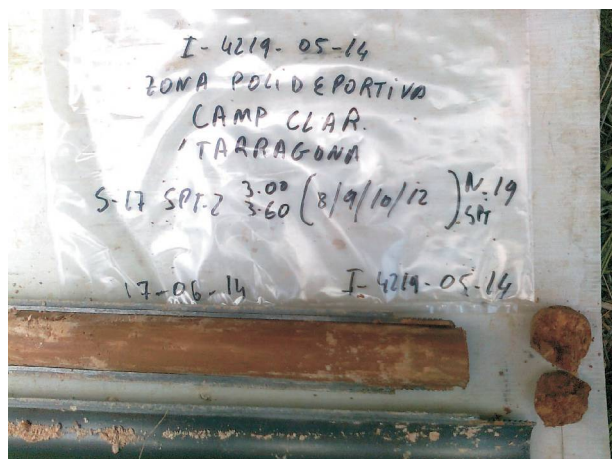 I-4219-05-14
ZONA POLIDEPORTIVA
CAMP CLAR.
TARRAGONA
S-17 SPT-2 3.00 3.60 (8/9/10/12) N.19 SPT
17-06-14 I-4219-05-14